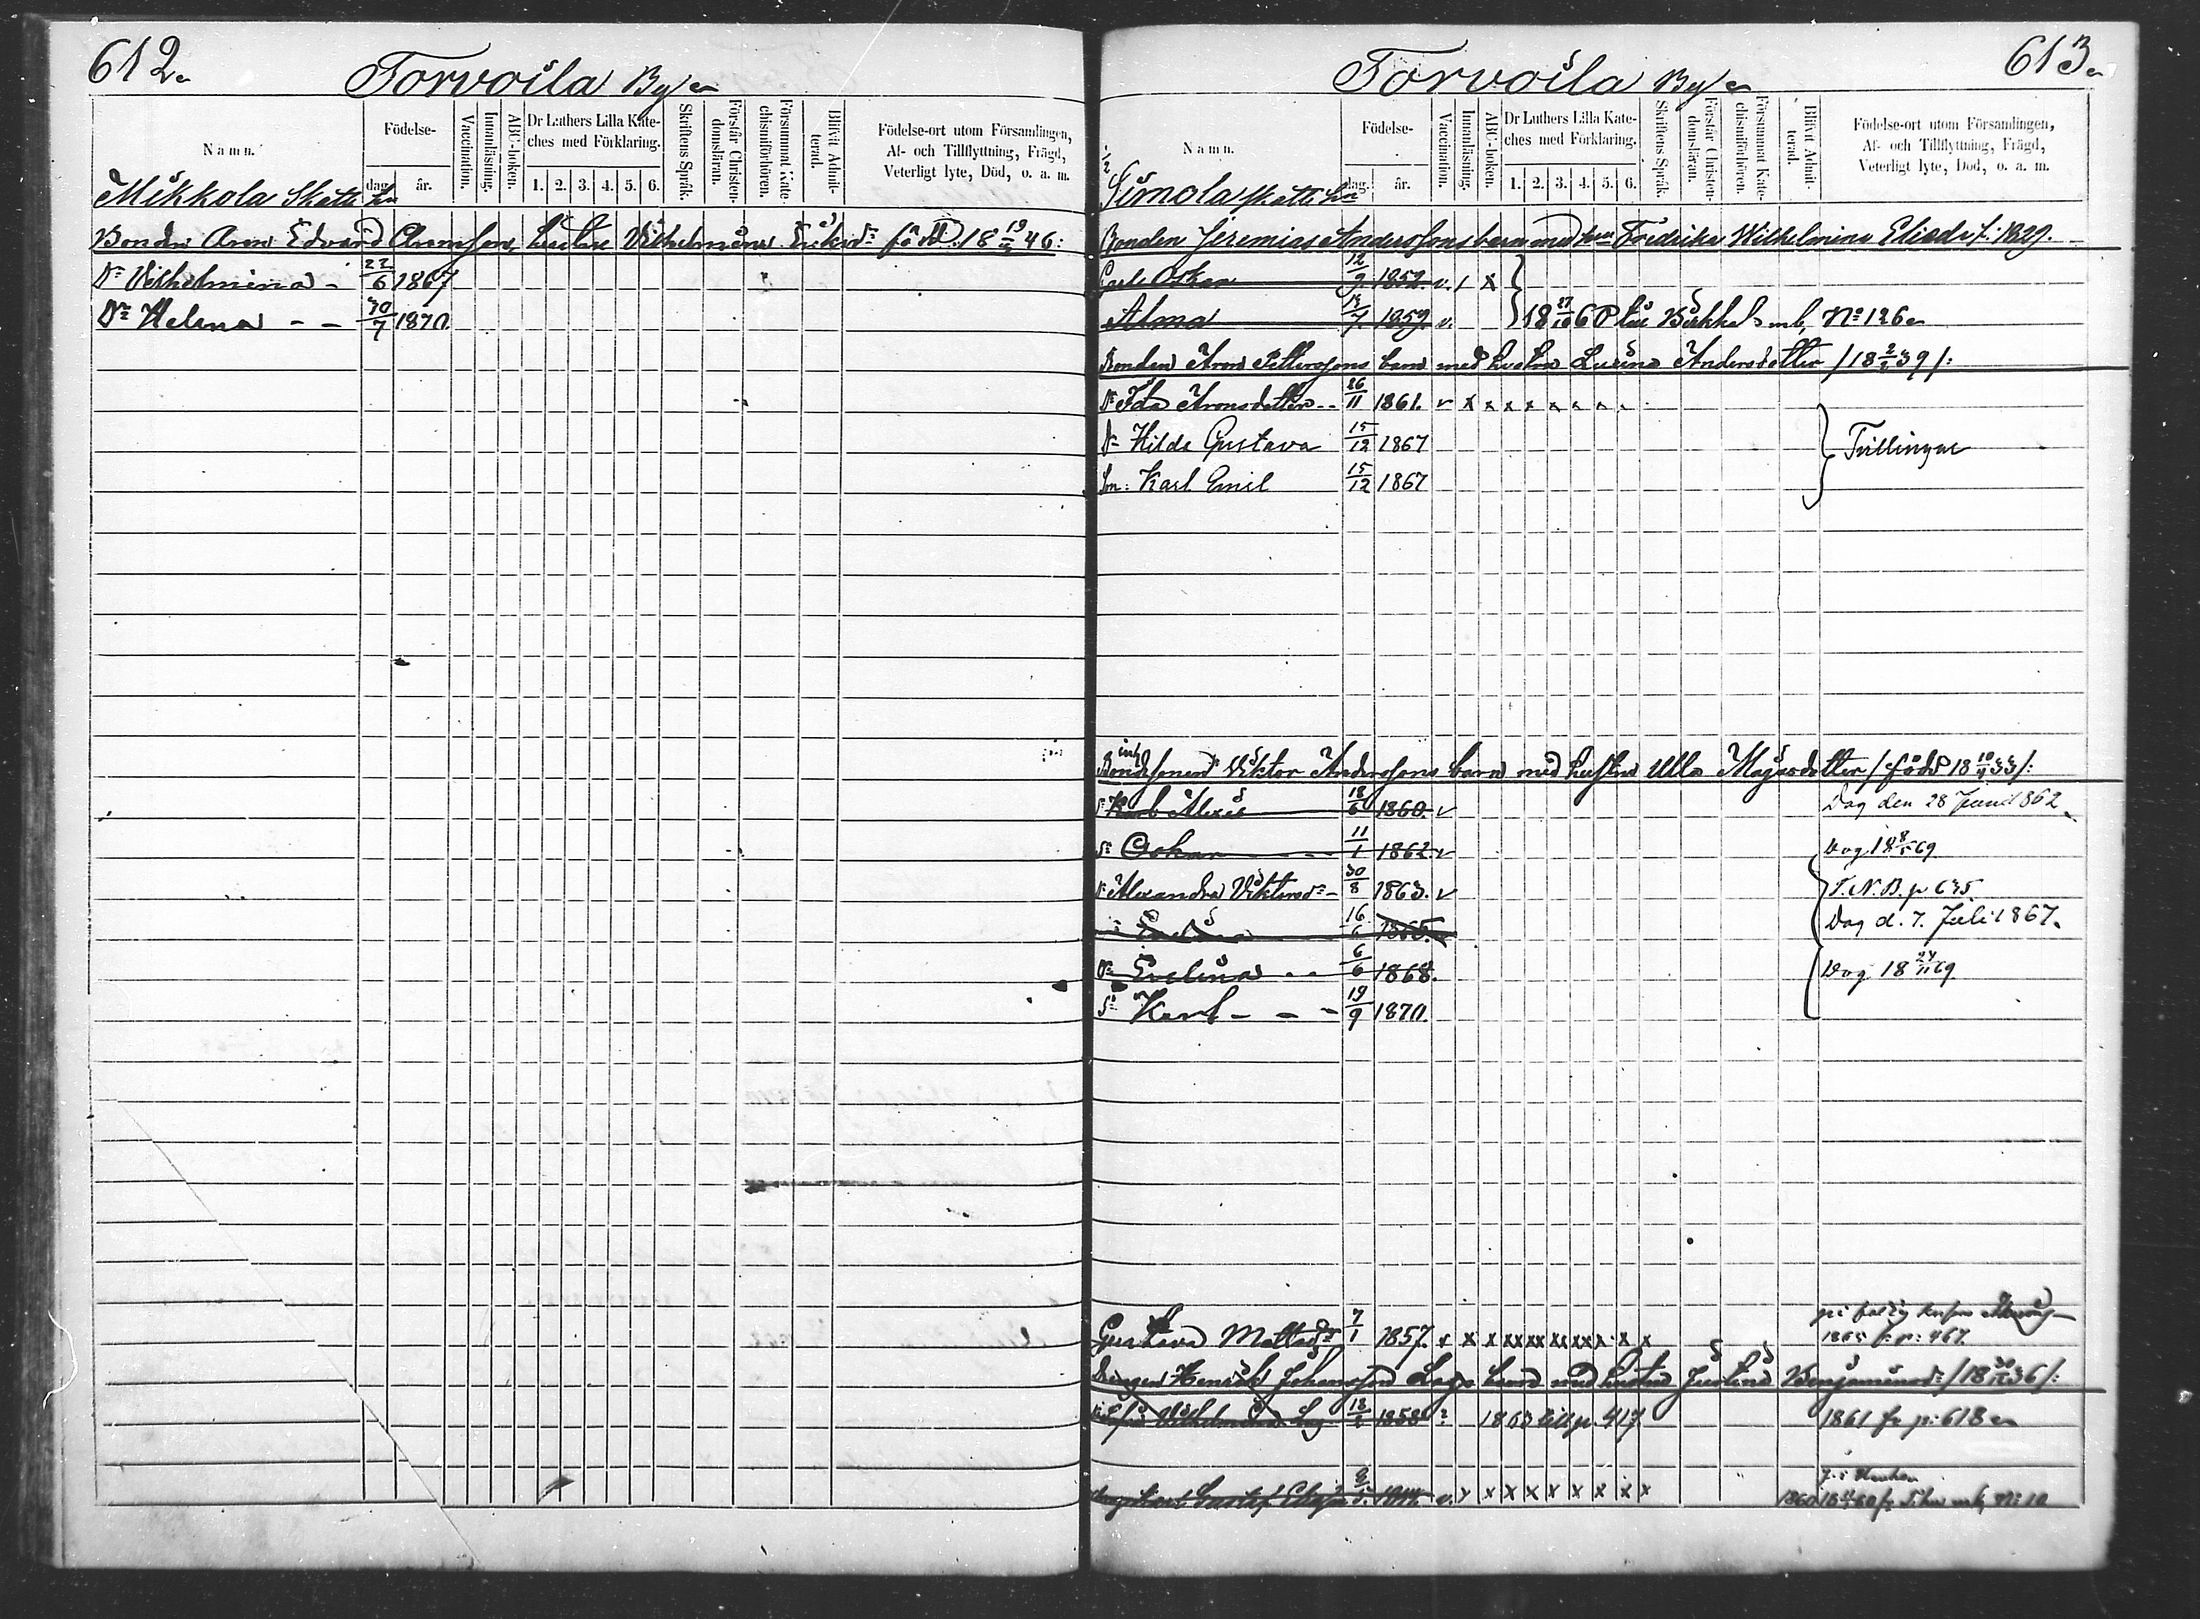 612.
Torvoila By
Namn.
Födelse-
dag. år.
Vaccination.
Innanläsning.
ABC-boken.
Dr Luthers Lilla Kate-
ches med Förklaring.
1. 2. 3. 4. 5. 6.
Skriftens Språk.
Förstår Christen-
domsläran.
Försummat Kate-
chismiförhören.
Blifvit Admit-
terad.
Födelse-ort utom Församlingen,
Af- och Tillflyttning, Frägd,
Veterligt lyte, Död, o. a. m.
Mikkola Skatte
Bonden Aron Edvard hustru Vilhelmina född 18 46:
Dr Vilhelmina - 22/6 1867
Dr Helena - - 30/7 1870.
613.
Torvoila By
Namn.
Födelse-
dag. år.
Vaccination.
Innanläsning.
ABC-boken.
Dr Luthers Lilla Kate-
ches med Förklaring.
1. 2. 3. 4. 5. 6.
Skriftens Språk.
Förstår Christen-
domsläran.
Försummat Kate-
chismiförhören.
Blifvit Admit-
terad.
Födelse-ort utom Församlingen,
Af- och Tillflyttning, Frägd,
Veterligt lyte, Död, o. a. m.
1/2
Simola Skatte
Bonden Jeremias Anderssons barn med Fredrika Wilhelmina f. 1829.
Carl Oskar 12/9 1852. v. x
Alma 1859. v. 18 27/10 6 mb, No 126
Bonden Aron Pettersons barn med hustru Lovina Andersdotter /18 2/2 39/:
Dr Ida Aronsdotter - - 26/11 1861. v x x x x x x x x
Dr Hilda Gustava 15/12 1867 Tvillingar
Son: Karl Emil 15/12 1867
inh
Bondesonen Viktor Anderssons barn med hustru Ulla Majasdotter /född 18 33/:
Karl Alexis 18/6 1860. v Dog den 28 Juni 1862
Sn Oskar - - - 11/1 1862. v Dog 18 69
Dr Alexandra Viktorsdr - 30/8 1863. v T. N. B. p 635
16/6 1865. Dog d. 7. Juli 1867.
Dr Evelina - - 6/6 1868. Dog 18 24/11 69
Sn Karl - - - 19/9 1870.
Gustava Mattsdr 7/1 1857. v x x x x x x x x x x x x 1865 fr p: 467.
Drengen Henrik Johansson Lags barn med hustru Justina Benjaminsdr /18 36/:
Sofia Vilhelmina Lag 1858 1863 till p. 417 1861 fr p: 618
Gustaf v. x x x x x x x x 1860 fr mb, No 10